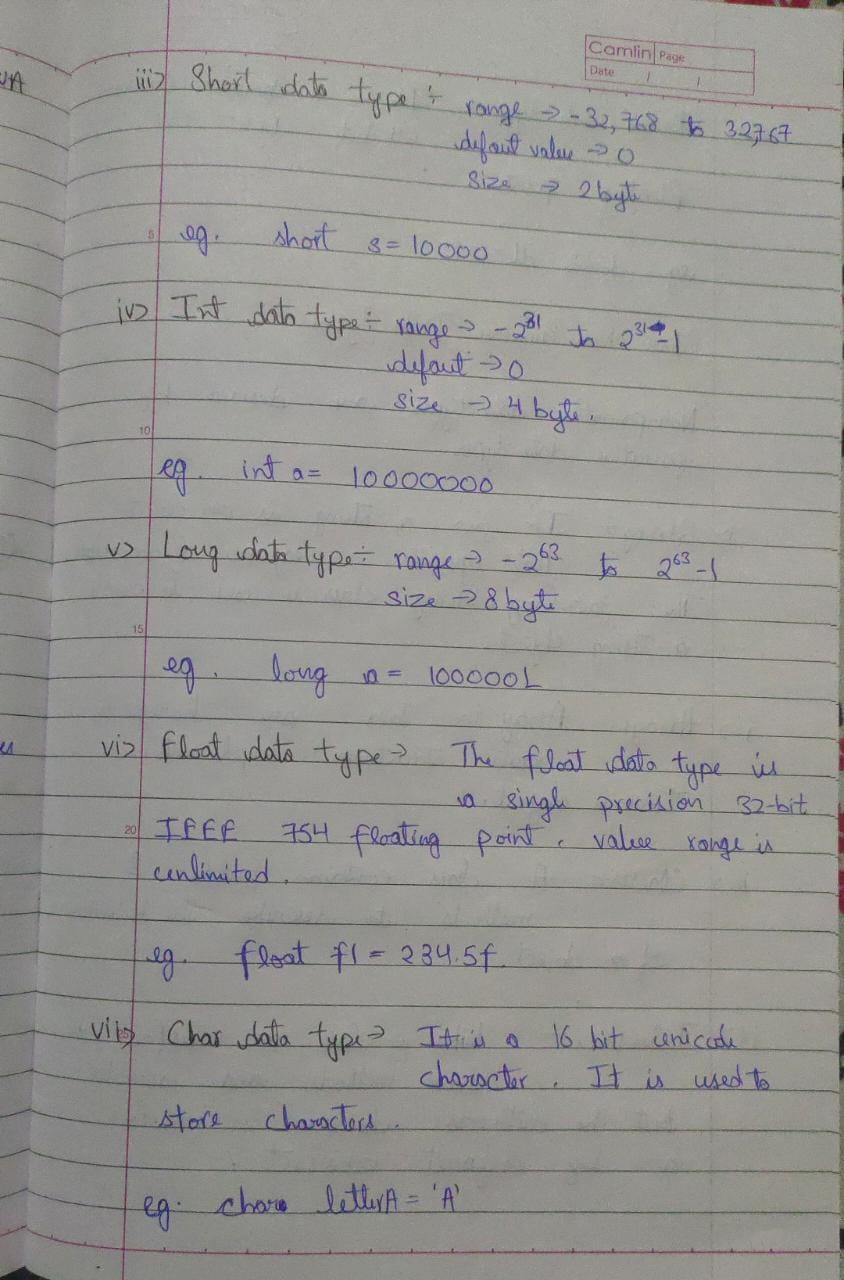 Camlin Page
Date / /
iii> Short data type ÷ range → -32,768 to 32,767
defaut value → 0
size → 2 byte
5
eg. short s = 10000
iv> Int data type ÷ range → -2^31 to 2^31-1
defaut → 0
size → 4 byte.
10
eg. int a = 10000000
v> Long data type ÷ range → -2^63 to 2^63-1
size → 8 byte
15
eg. long a = 100000L
vi> float data type → The float data type is
a single precision 32-bit
20
IEEE 754 floating point. value range is
unlimited.
eg. float f1 = 234.5f.
vii> Char data type → It is a 16 bit unicode
character. It is used to
store characters.
eg. char letterA = 'A'